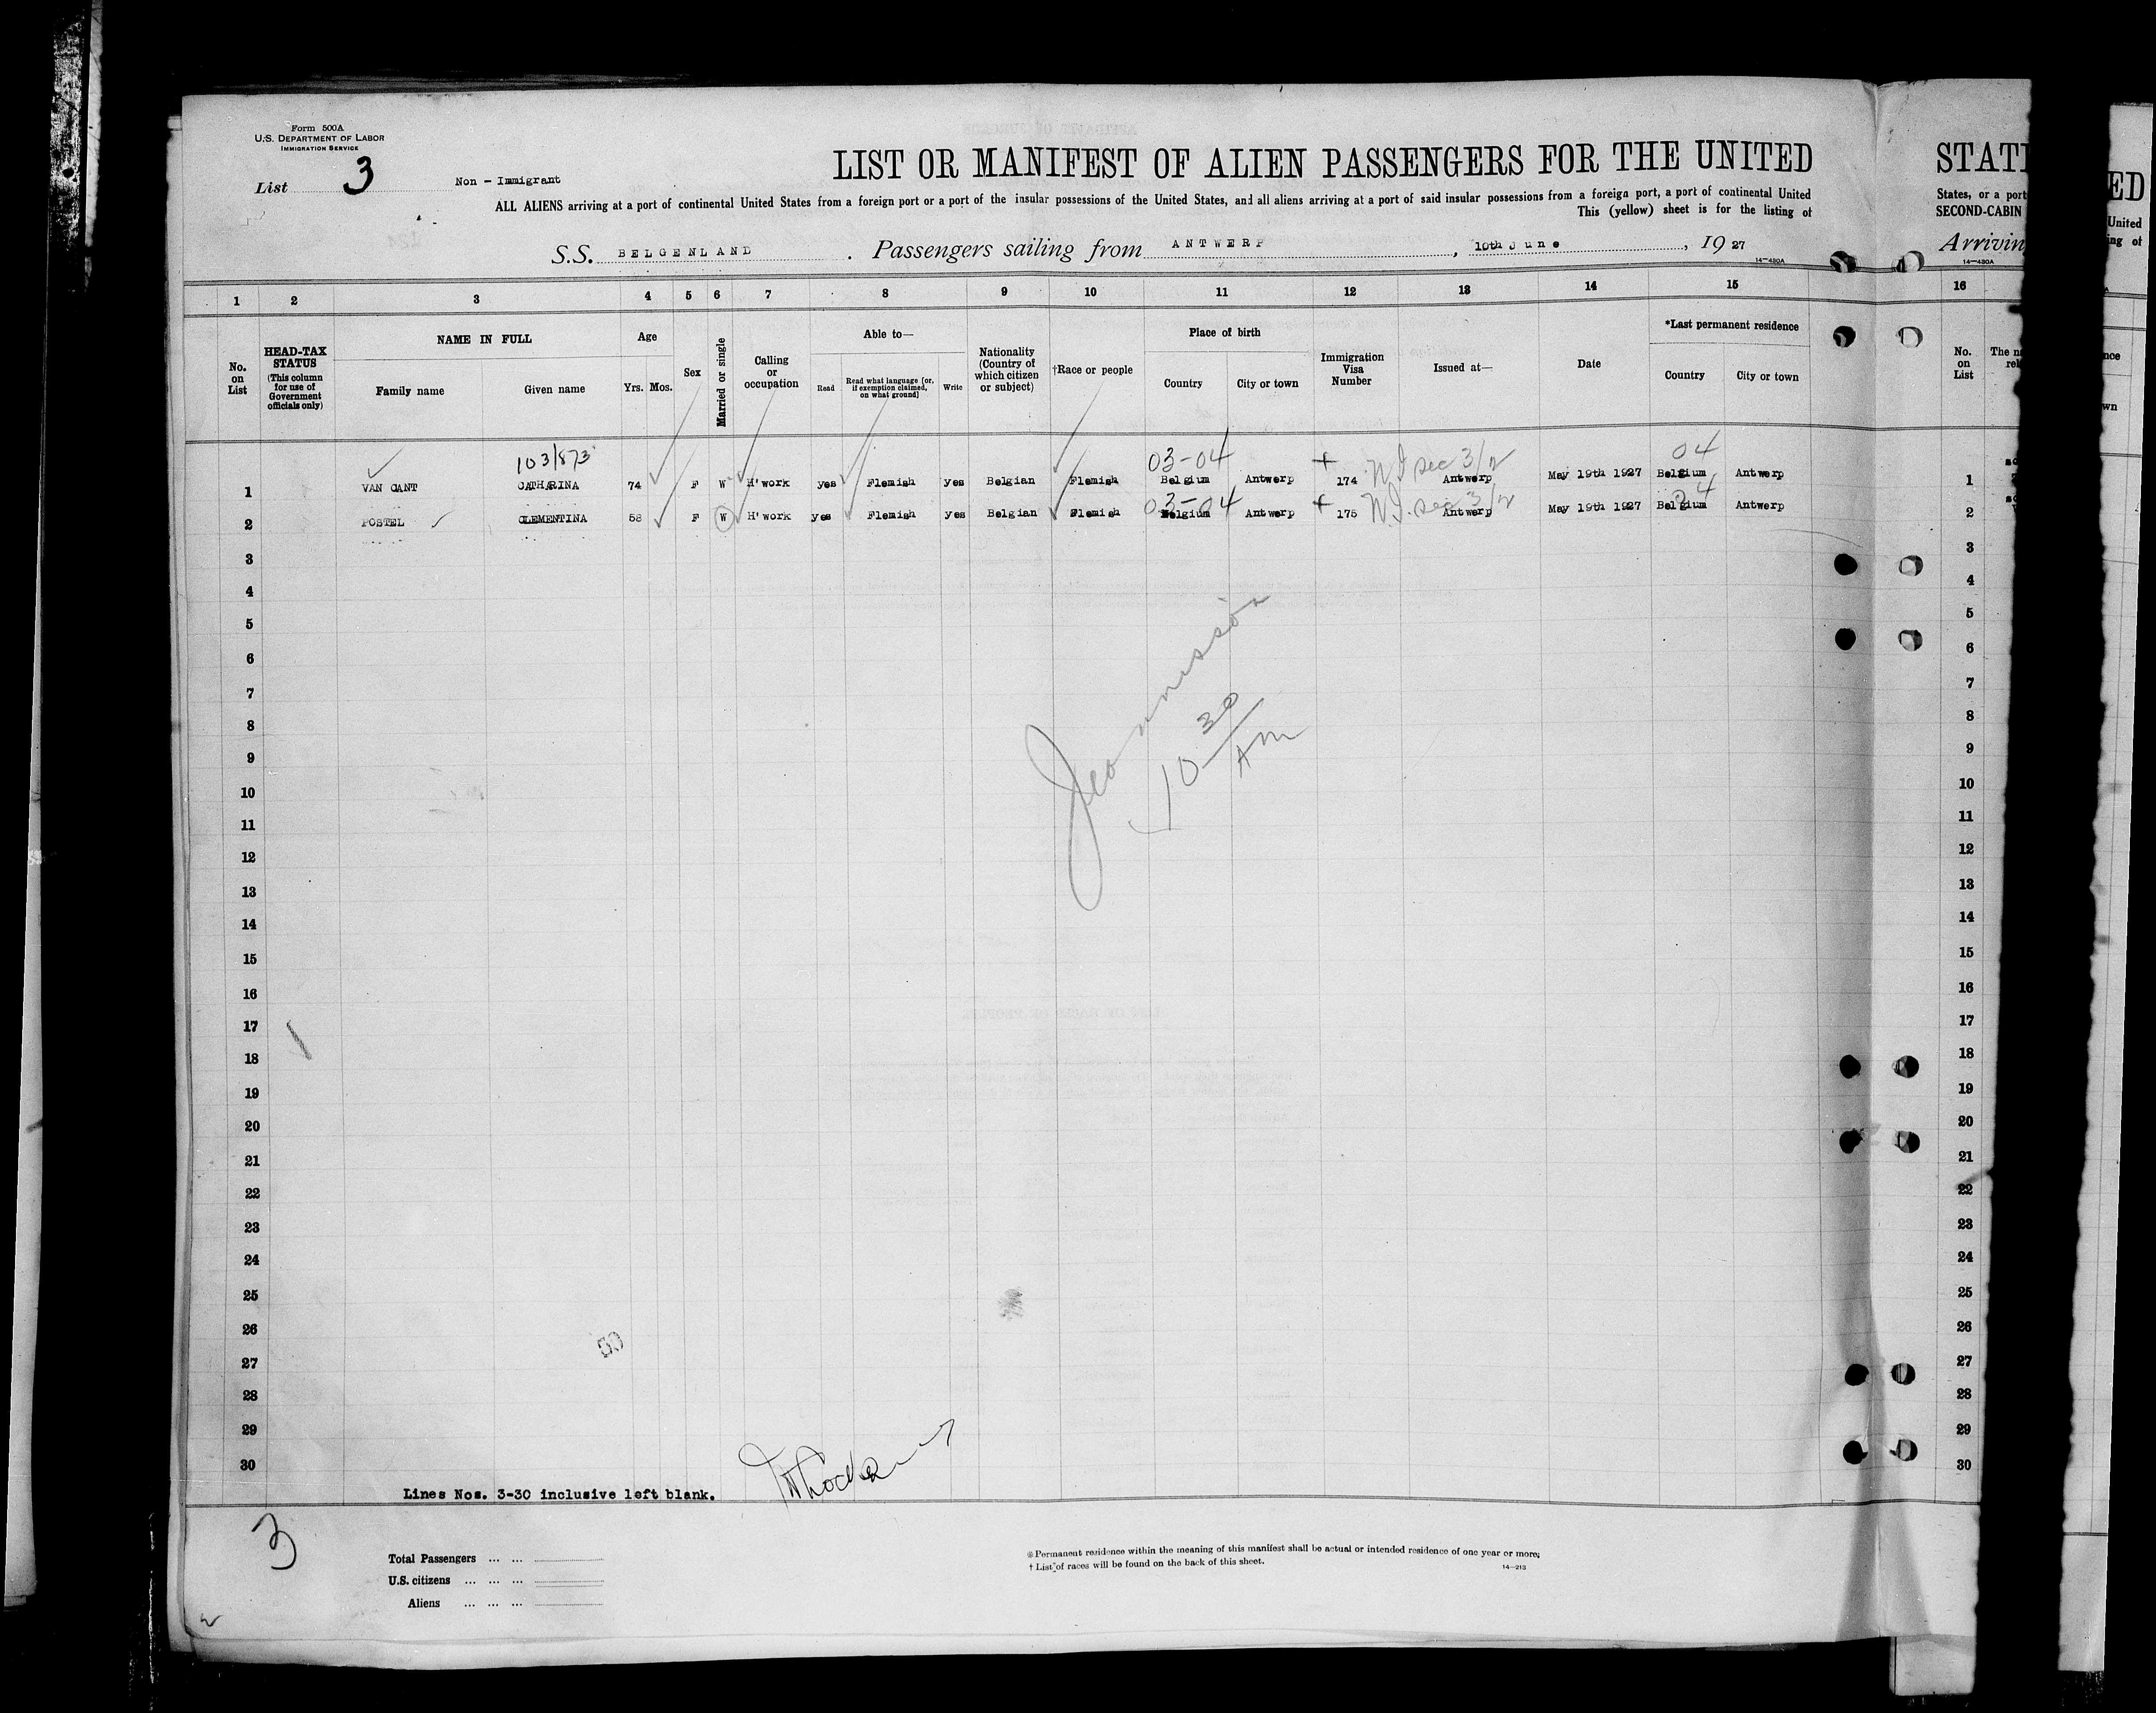 Form 500A
U.S. DEPARTMENT OF LABOR
IMMIGRATION SERVICE
List 3
Non - Immigrant
LIST OR MANIFEST OF ALIEN PASSENGERS FOR THE UNITED
ALL ALIENS arriving at a port of continental United States from a foreign port or a port of the insular possessions of the United States, and all aliens arriving at a port of said insular possessions from a foreign port, a port of continental United
This (yellow) sheet is for the listing of
S.S. BELGENLAND . Passengers sailing from ANTWERP , 10th June , 19 27
14-480A
STATE
States, or a port
SECOND-CABIN
Arrivin
14-480A
ED
United
ing of
1 2 3 4 5 6 7 8 9 10 11 12 13 14 15 16
No. on List
HEAD-TAX STATUS
(This column for use of Government officials only)
NAME IN FULL
Family name Given name
Age
Yrs. Mos.
Sex
Married or single
Calling or occupation
Able to—
Read
Read what language [or, if exemption claimed, on what ground]
Write
Nationality (Country of which citizen or subject)
†Race or people
Place of birth
Country City or town
Immigration Visa Number
Issued at—
Date
*Last permanent residence
Country City or town
No. on List
103/873 03-04 04
1 VAN CANT CATHARINA 74 F W H'work yes Flemish yes Belgian Flemish Belgium Antwerp 174 Antwerp May 19th 1927 Belgium Antwerp 1
03-04 04
2 POSTEL CLEMENTINA 58 F W H'work yes Flemish yes Belgian Flemish Belgium Antwerp 175 Antwerp May 19th 1927 Belgium Antwerp 2
3 3
4 4
5 5
6 6
7 7
8 8
9 9
10 10
11 11
12 12
13 13
14 14
15 15
16 16
17 17
18 18
19 19
20 20
21 21
22 22
23 23
24 24
25 25
26 26
27 27
28 28
29 29
30 30
10 30 AM
50
Lines Nos. 3-30 inclusive left blank.
3
Total Passengers ... ...
U.S. citizens ... ... ...
Aliens ... ... ...
*Permanent residence within the meaning of this manifest shall be actual or intended residence of one year or more.
† List of races will be found on the back of this sheet.
14-213